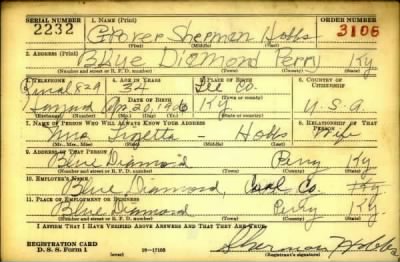 SERIAL NUMBER 1. NAME (Print) ORDER NUMBER
2232 Grover Sherman Hobbs 3106
(First) (Middle) (Last)
2. ADDRESS (Print)
Blue Diamond Perry Ky
(Number and street or R. F. D. number) (Town) (County) (State)
3. TELEPHONE 4. AGE IN YEARS 5. PLACE OF BIRTH 6. COUNTRY OF CITIZENSHIP
829 34 Lee Co.
DATE OF BIRTH (Town or county)
Hazard Apr. 20, 1906 Ky U.S.A
(Exchange) (Number) (Mo.) (Day) (Yr.) (State or country)
7. NAME OF PERSON WHO WILL ALWAYS KNOW YOUR ADDRESS 8. RELATIONSHIP OF THAT PERSON
Mrs - Hobbs Wife
(Mr., Mrs., Miss) (First) (Middle) (Last)
9. ADDRESS OF THAT PERSON
Blue Diamond Perry Ky
(Number and street or R. F. D. number) (Town) (County) (State)
10. EMPLOYER'S NAME
Blue Diamond, Coal Co. Ky
11. PLACE OF EMPLOYMENT OR BUSINESS
Blue Diamond Perry Ky.
(Number and street or R. F. D. number) (Town) (County) (State)
I AFFIRM THAT I HAVE VERIFIED ABOVE ANSWERS AND THAT THEY ARE TRUE.
REGISTRATION CARD
D. S. S. Form 1 16—17105 Sherman Hobbs
(Registrant's signature)